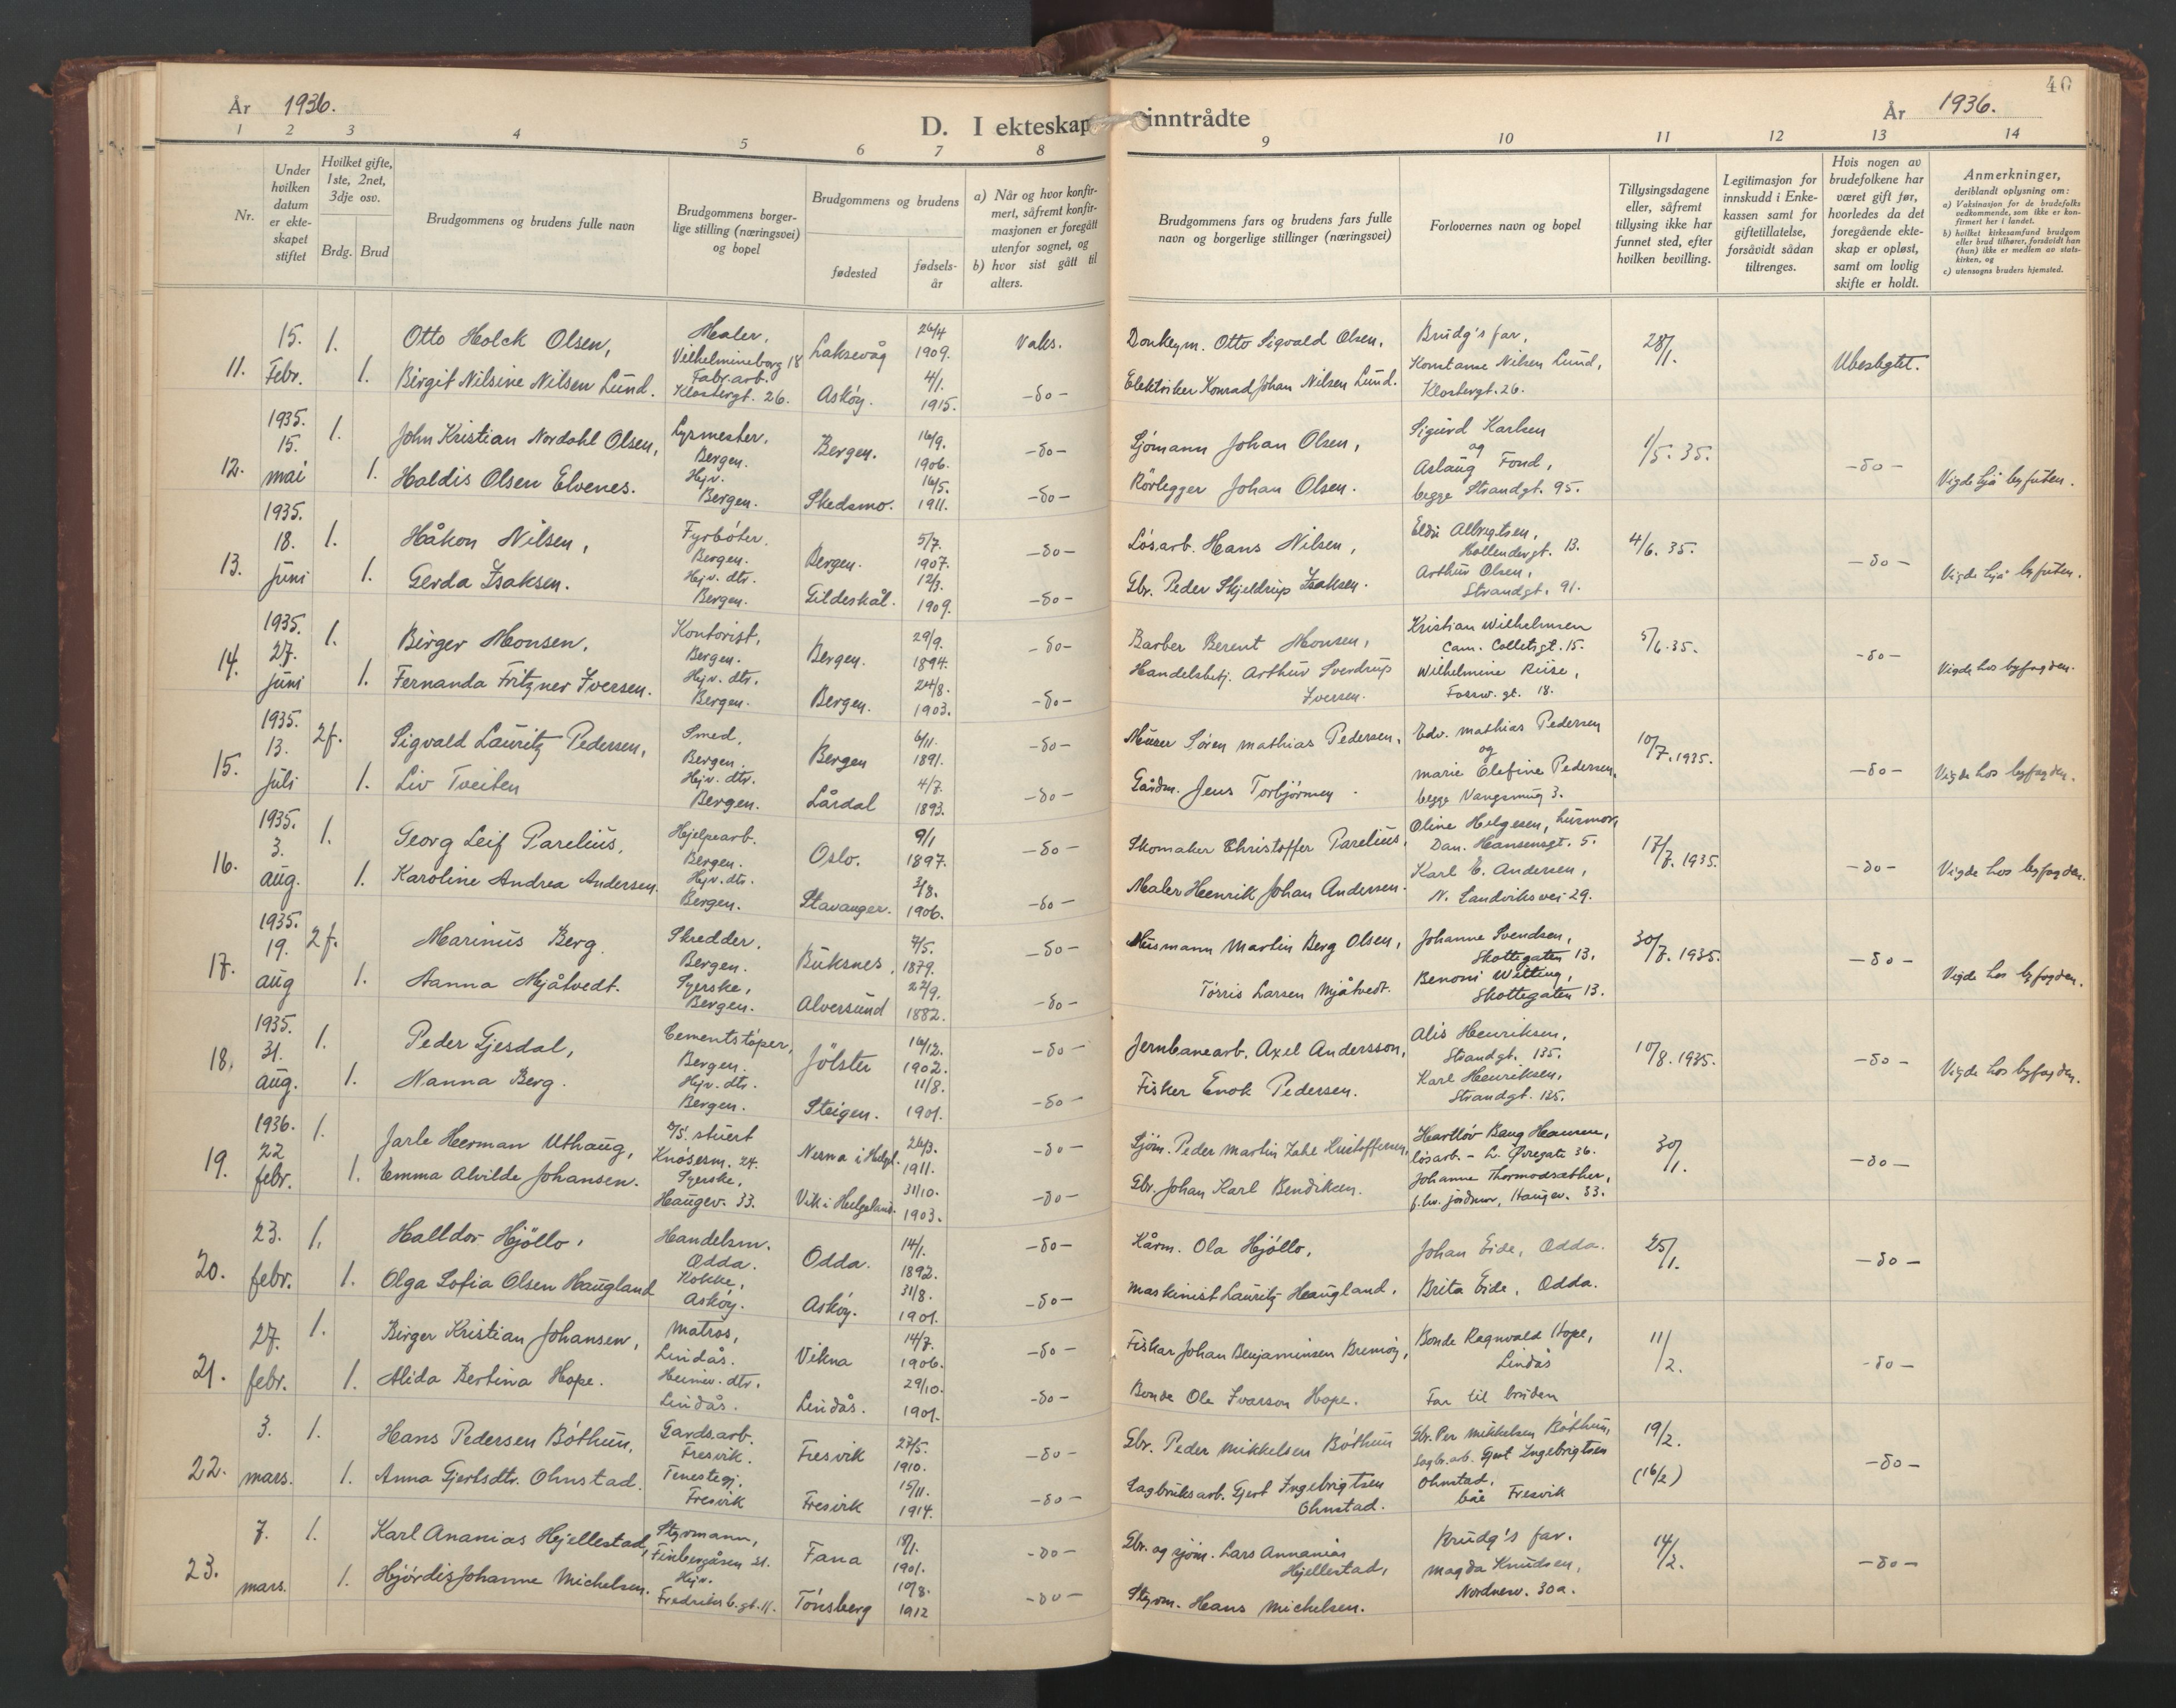 År 1936.
D. I ekteskap inntrådte
År 1936.
40
1 2 3 4 5 6 7 8 9 10 11 12 13 14
Nr.
Under hvilken datum er ekteskapet stiftet
Hvilket gifte, 1ste, 2net, 3dje osv.
Brdg. Brud
Brudgommens og brudens fulle navn
Brudgommens borgerlige stilling (næringsvei) og bopel
Brudgommens og brudens
fødested
fødselsår
a) Når og hvor konfirmert, såfremt konfirmasjonen er foregått utenfor sognet, og
b) hvor sist gått til alters.
Brudgommens fars og brudens fars fulle navn og borgerlige stillinger (næringsvei)
Forlovernes navn og bopel
Tillysingsdagene eller, såfremt tillysing ikke har funnet sted, efter hvilken bevilling.
Legitimasjon for innskudd i Enkekassen samt for giftetillatelse, forsåvidt sådan tiltrenges.
Hvis nogen av brudefolkene har været gift før, hvorledes da det foregående ekteskap er opløst, samt om lovlig skifte er holdt.
Anmerkninger, deriblandt oplysning om:
a) Vaksinasjon for de brudefolks vedkommende, som ikke er konfirmert her i landet.
b) hvilket kirkesamfund brudgom eller brud tilhører, forsåvidt han (hun) ikke er medlem av statskirken, og
c) utensogns bruders hjemsted.
11. 15. Febr. 1. Otto Holck Olsen, Maler, Vilhelmineborg 18 Laksevåg 26/4 1909. Vaks. Donkeym. Otto Sigvald Olsen, Brudg's far, 28/1. Ubeslegtet.
1. Birgit Nilsine Nilsen Lund. Fabr.arb. Klostergt. 26. Askøy. 4/1. 1915. -do- Elektriker Konrad Johan Nilsen Lund. Konstanse Nilsen Lund, Klostergt. 26.
12. 1935. 15. mai 1. John Kristian Nordahl Olsen, Lyrmester, Bergen. Bergen. 16/9. 1906. -do- Sjømann Johan Olsen, Sigurd Karlsen og 1/5. 35. -do- Vigde hjå byfuten.
1. Haldis Olsen Elvenes. Hjv. Bergen. Skedsmo. 16/5. 1911. -do- Rörlegger Johan Olsen. Aslaug Fond, begge Strandgt. 95.
13. 1935. 18. juni 1. Håkon Nilsen, Fyrbøter. Bergen. Bergen. 5/7. 1907. -do- Løsarb. Hans Nilsen, Eldri Albrigtsen, Hollendergt. 13. 4/6. 35. -do- Vigde hjå byfuten.
1. Gerda Isaksen. Hjv. dtr. Bergen. Gildeskål. 12/3. 1909. -do- Gbr. Peder Skjeldrup Isaksen. Arthur Olsen, Strandgt. 91.
14. 1935. 27. juni 1. Birger Monsen, Kontorist, Bergen. Bergen. 29/9. 1894. -do- Barber Berent Monsen, Kristian Wilhelmsen Cam. Colletsgt. 15. 5/6. 35. -do- Vigde hos byfogden.
1. Fernanda Fritzner Iversen. Hjv. dtr. Bergen. Bergen. 24/8. 1903. -do- Handelsbetj. Arthur Sverdrup Iversen. Wilhelmine Riise, Fossw. gt. 18.
15. 1935. 13. juli 2f. Sigvald Lauritz Pedersen, Smed, Bergen. Bergen 6/11. 1891. -do- Murer Søren Mathias Pedersen, Edv. Mathias Pedersen og 10/7. 1935. -do- Vigde hos byfogden.
1. Liv Tveiten Hjv. dtr. Bergen. Lårdal 4/7. 1893. -do- Gårdm. Jens Torbjörnsen. Marie Elefine Pedersen, begge Vangsmug 3.
16. 1935. 3. aug. 1. Georg Leif Parelius, Hjelpearb. Bergen. Oslo. 9/1 1897. -do- Skomaker Christoffer Parelius, Oline Helgesen, husmor, Dan. Hansensgt. 5. 17/7. 1935. -do- Vigde hos byfogden.
1. Karoline Andrea Andersen. Hjv. dtr. Bergen. Stavanger. 3/8. 1906. -do- Maler Henrik Johan Andersen. Karl E. Andersen, N. Sandviksvei 29.
17. 1935. 19. aug 2f. Marinus Berg. Skredder. Bergen. Buksnes. 7/5. 1879. -do- Husmann Martin Berg Olsen, Johanne Svendsen, Skottegaten 13, 30/7. 1935. -do- Vigde hos byfogden.
1. Hanna Mjåtvedt. Syerske, Bergen. Alversund 22/9. 1882. -do- Törris Larsen Mjåtvedt. Benoni Witting, Skottegaten 13.
18. 1935. 31. aug. 1. Peder Gjesdal, Cementstøper, Bergen. Jölster 16/12. 1902. -do- Jernbanearb. Axel Andersson, Alis Henriksen, Strandgt. 135. 10/8. 1935. -do- Vigde hos byfogden.
1. Nanna Berg. Hjv. dtr. Bergen. Steigen. 11/8. 1901. -do- Fisker Enok Pedersen. Karl Henriksen, Strandgt. 135.
19. 1936. 22 febr. 1. Jarle Herman Uthaug, stuert Knøsesm. 24. Nesna i Helgl. 26/3. 1911. -do- Sjöm. Peder Martin Zahl Kristoffersen, Hartløv Baug Hansen, løsarb. - L. Øvregate 36. 30/1. -do-
1. Emma Alvilde Johansen. Syerske, Haugev. 33. Vik i Helgeland. 31/10. 1903. -do- Gbr. Johan Karl Bendiksen. Johanne Thormodsæther, jordmor, Haugev. 33.
20. 23. febr. 1. Halldor Hjöllo, Handelsm. Odda. Odda. 14/1. 1892. -do- Kårm. Ola Hjöllo, Johan Eide, Odda. 25/1. -do-
1. Olga Sofia Olsen Haugland Kokke, Askøy. Askøy. 31/8. 1901. -do- Maskinist Lauritz Haugland, Brita Eide, Odda.
21. 27. febr. 1. Birger Kristian Johansen, Matros, Lindås. Vikna 14/7. 1906. -do- Fiskar Johan Benjaminsen Bremöy, Bonde Ragnvald Hope, Lindås 11/2. -do-
1. Alida Bertina Hope. Heimev. dtr. Lindås. Lindås. 29/10. 1901. -do- Bonde Ole Ivarson Hope. Far til bruden
22. 3. mars. 1. Hans Pedersen Bøthun, Gardsarb. Fresvik. Fresvik 27/5. 1910. -do- Gbr. Peder Mikkelsen Bøthun Gbr. Per Mikkelsen Bøthun, 19/2. -do-
1. Anna Gjertsdtr. Ohnstad. Tenestegj. Fresvik Fresvik 15/11. 1914. -do- Sagbruksarb. Gjert Ingebrigtsen Ohnstad. Sagbr.arb. Gjert Ingebrigtsen Ohnstad, båe Fresvik (16/2)
23. 7. mars. 1. Karl Ananias Hjellestad, Styrmann, Finbergåsen 21. Fana 1901. -do- Gbr. og sjöm. Lars Annanias Hjellestad, Brudg's far. 14/2. -do-
1. Hjördis Johanne Michelsen. Hjv. Fredriksb.gt. 11. Tønsberg 10/8. 1912 -do- Styrm. Hans Michelsen. Magda Knudsen, Nordnesv. 30a.